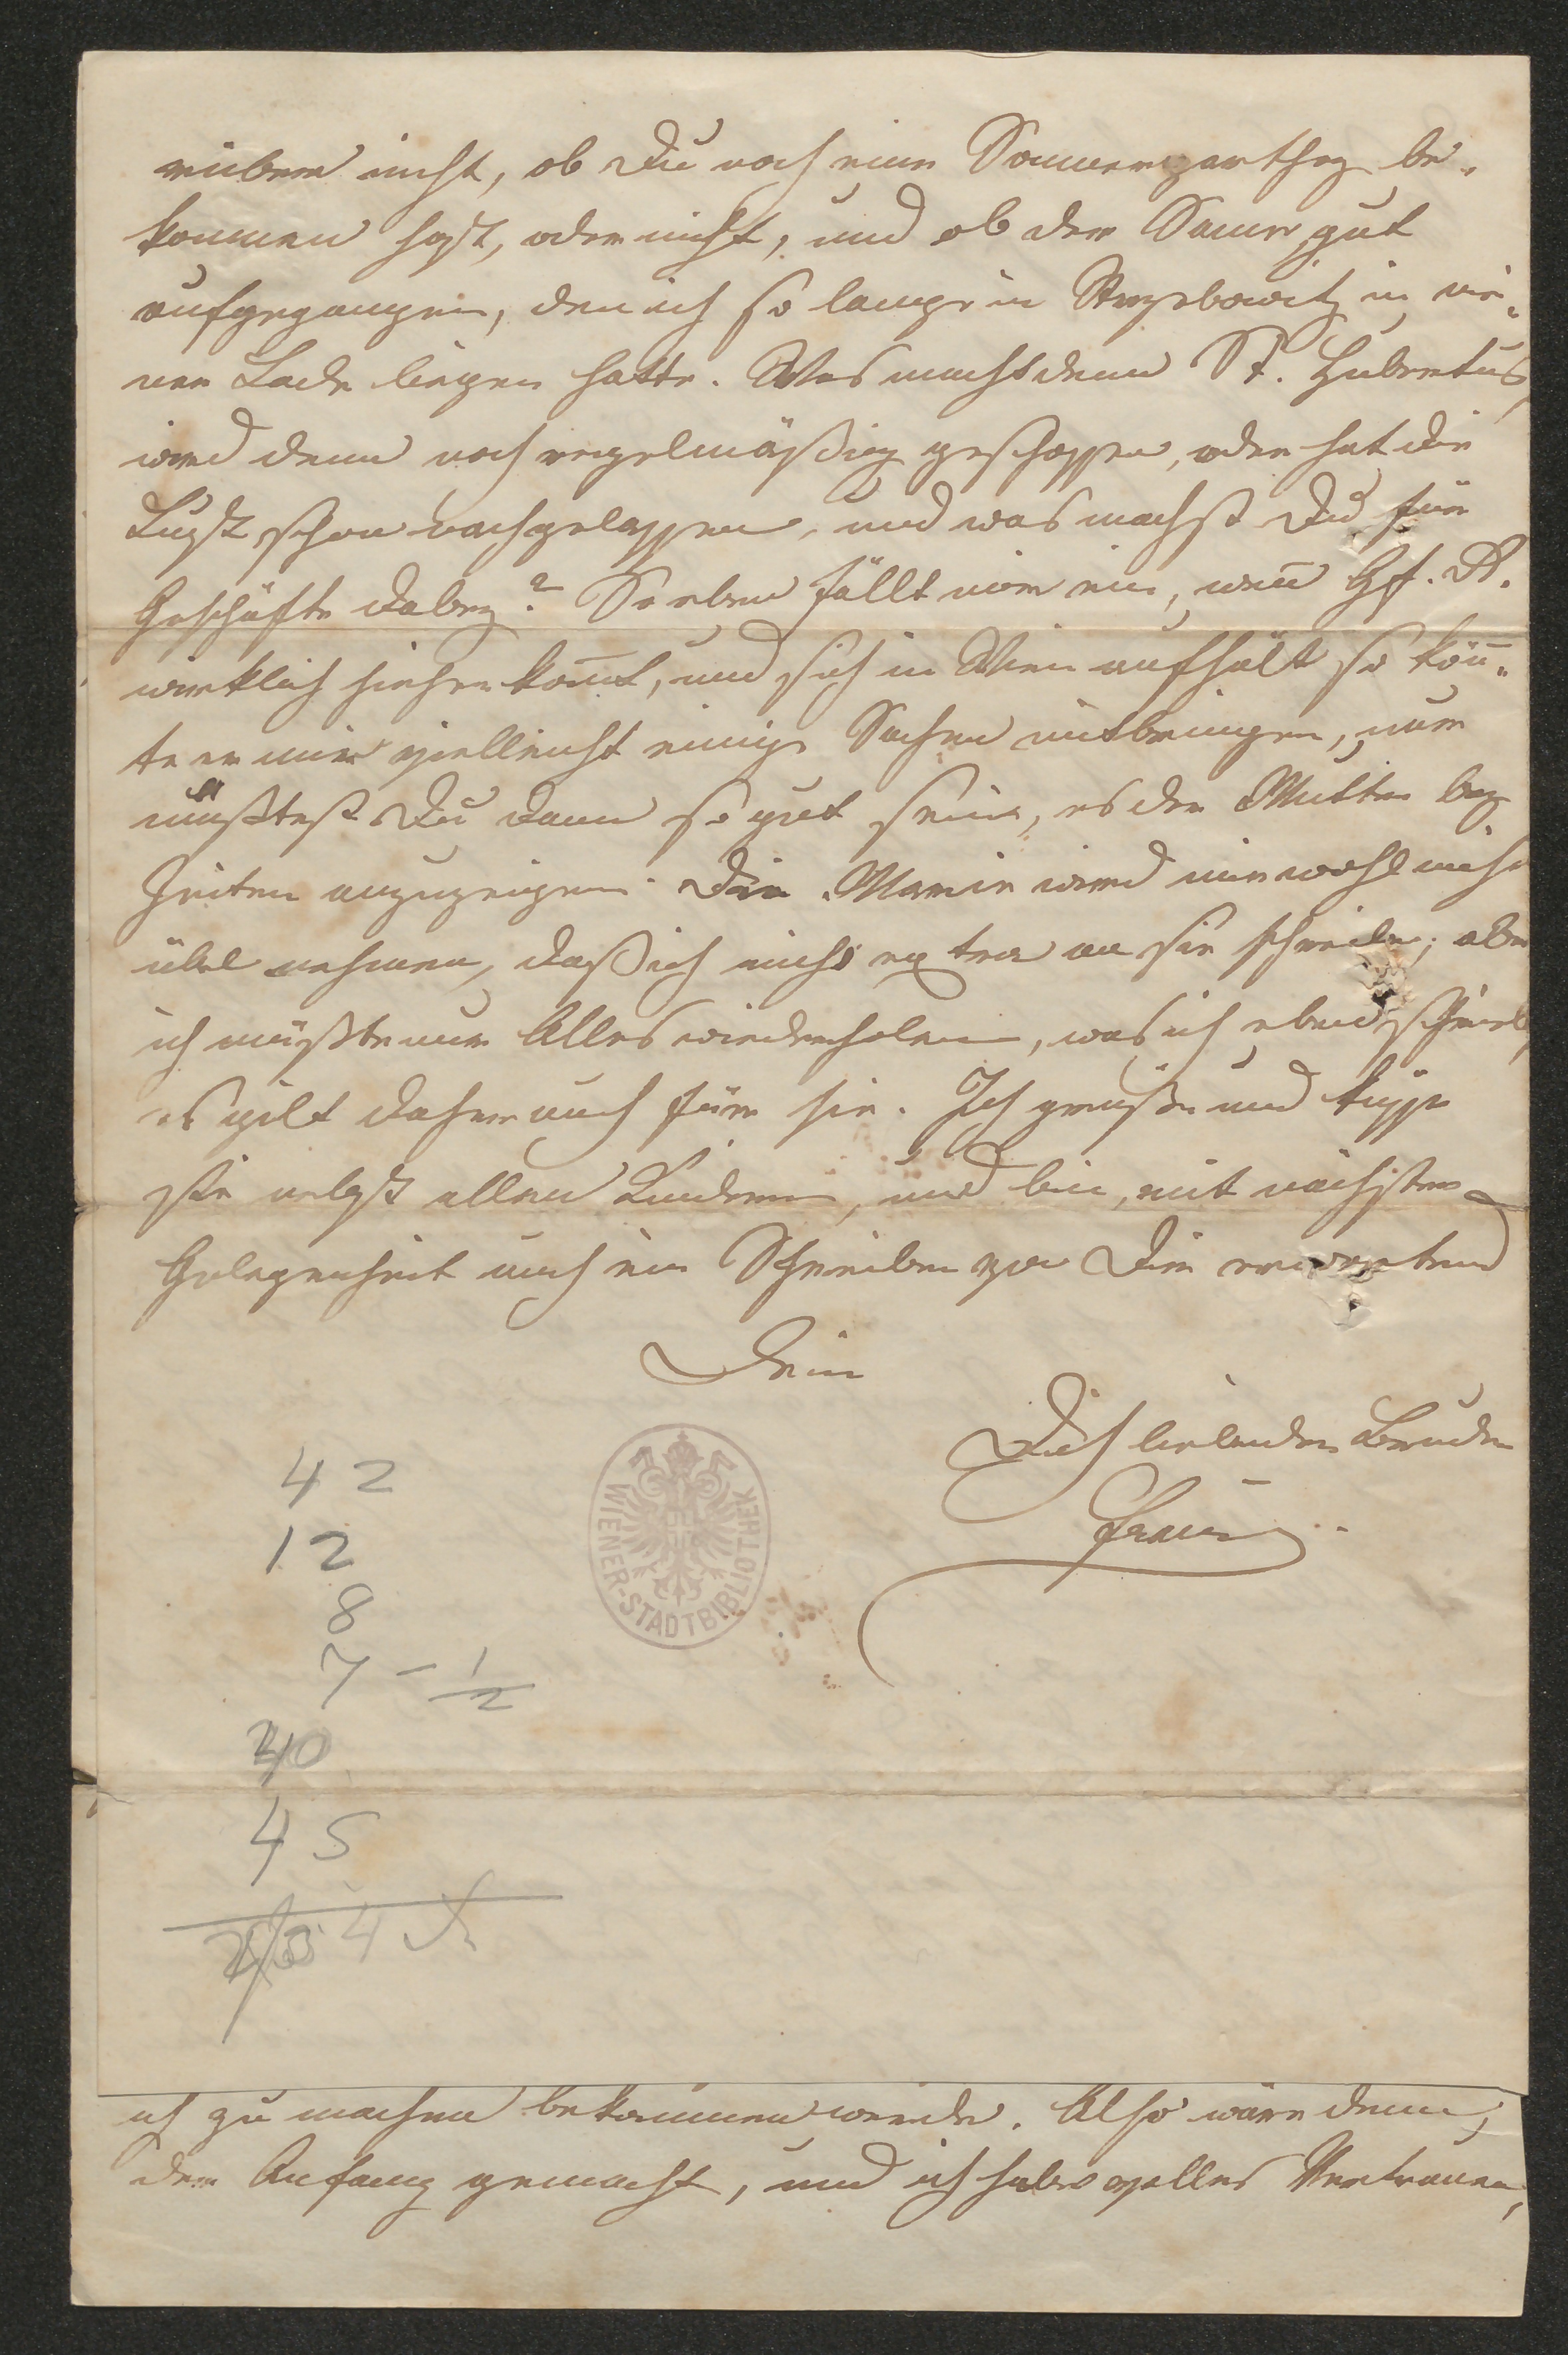 rüber nicht, ob Du noch eine Sommerparthey be-
kommen hast, oder nicht, und ob der Same gut
aufgegangen, den ich so lange in in mei-
ner Lade liegen hatte. Was macht denn St. Hubertus,
wird denn noch regelmäßig geschossen, oder hat die
Lust schon nachgelassen, und was machst Du für
Geschäfte dabey? So eben fällt mir ein, weñ Gf. A.
wirklich hieher kom̄t, und sich in Wien aufhält so kön̄-
te er mir vielleicht einige Sachen mitbringen, nur
müßtest Du dann so gut sein, es der Mutter bey
Zeiten anzuzeigen. Die Marie wird mir wohl nicht
übel nehmen, daß ich nicht extra an sie schreibe; aber
ich müßte nur Alles wiederholen, was ich eben schrieb,
es gilt daher auch für sie. Ich grüße und küsse
sie nebst allen Kindern, und bin, mit nächster
Gelegenheit auch ein Schreiben von Dir erwartend
Dein
Dich liebender Bruder
Franz
42
12
8
7 - 1/2
40
45
WIENER-STADTBIBLIOTHEK
ich zu machen bekommen werde. Also wäre denn
der Anfang gemacht, und ich habe volles Vertrauen,